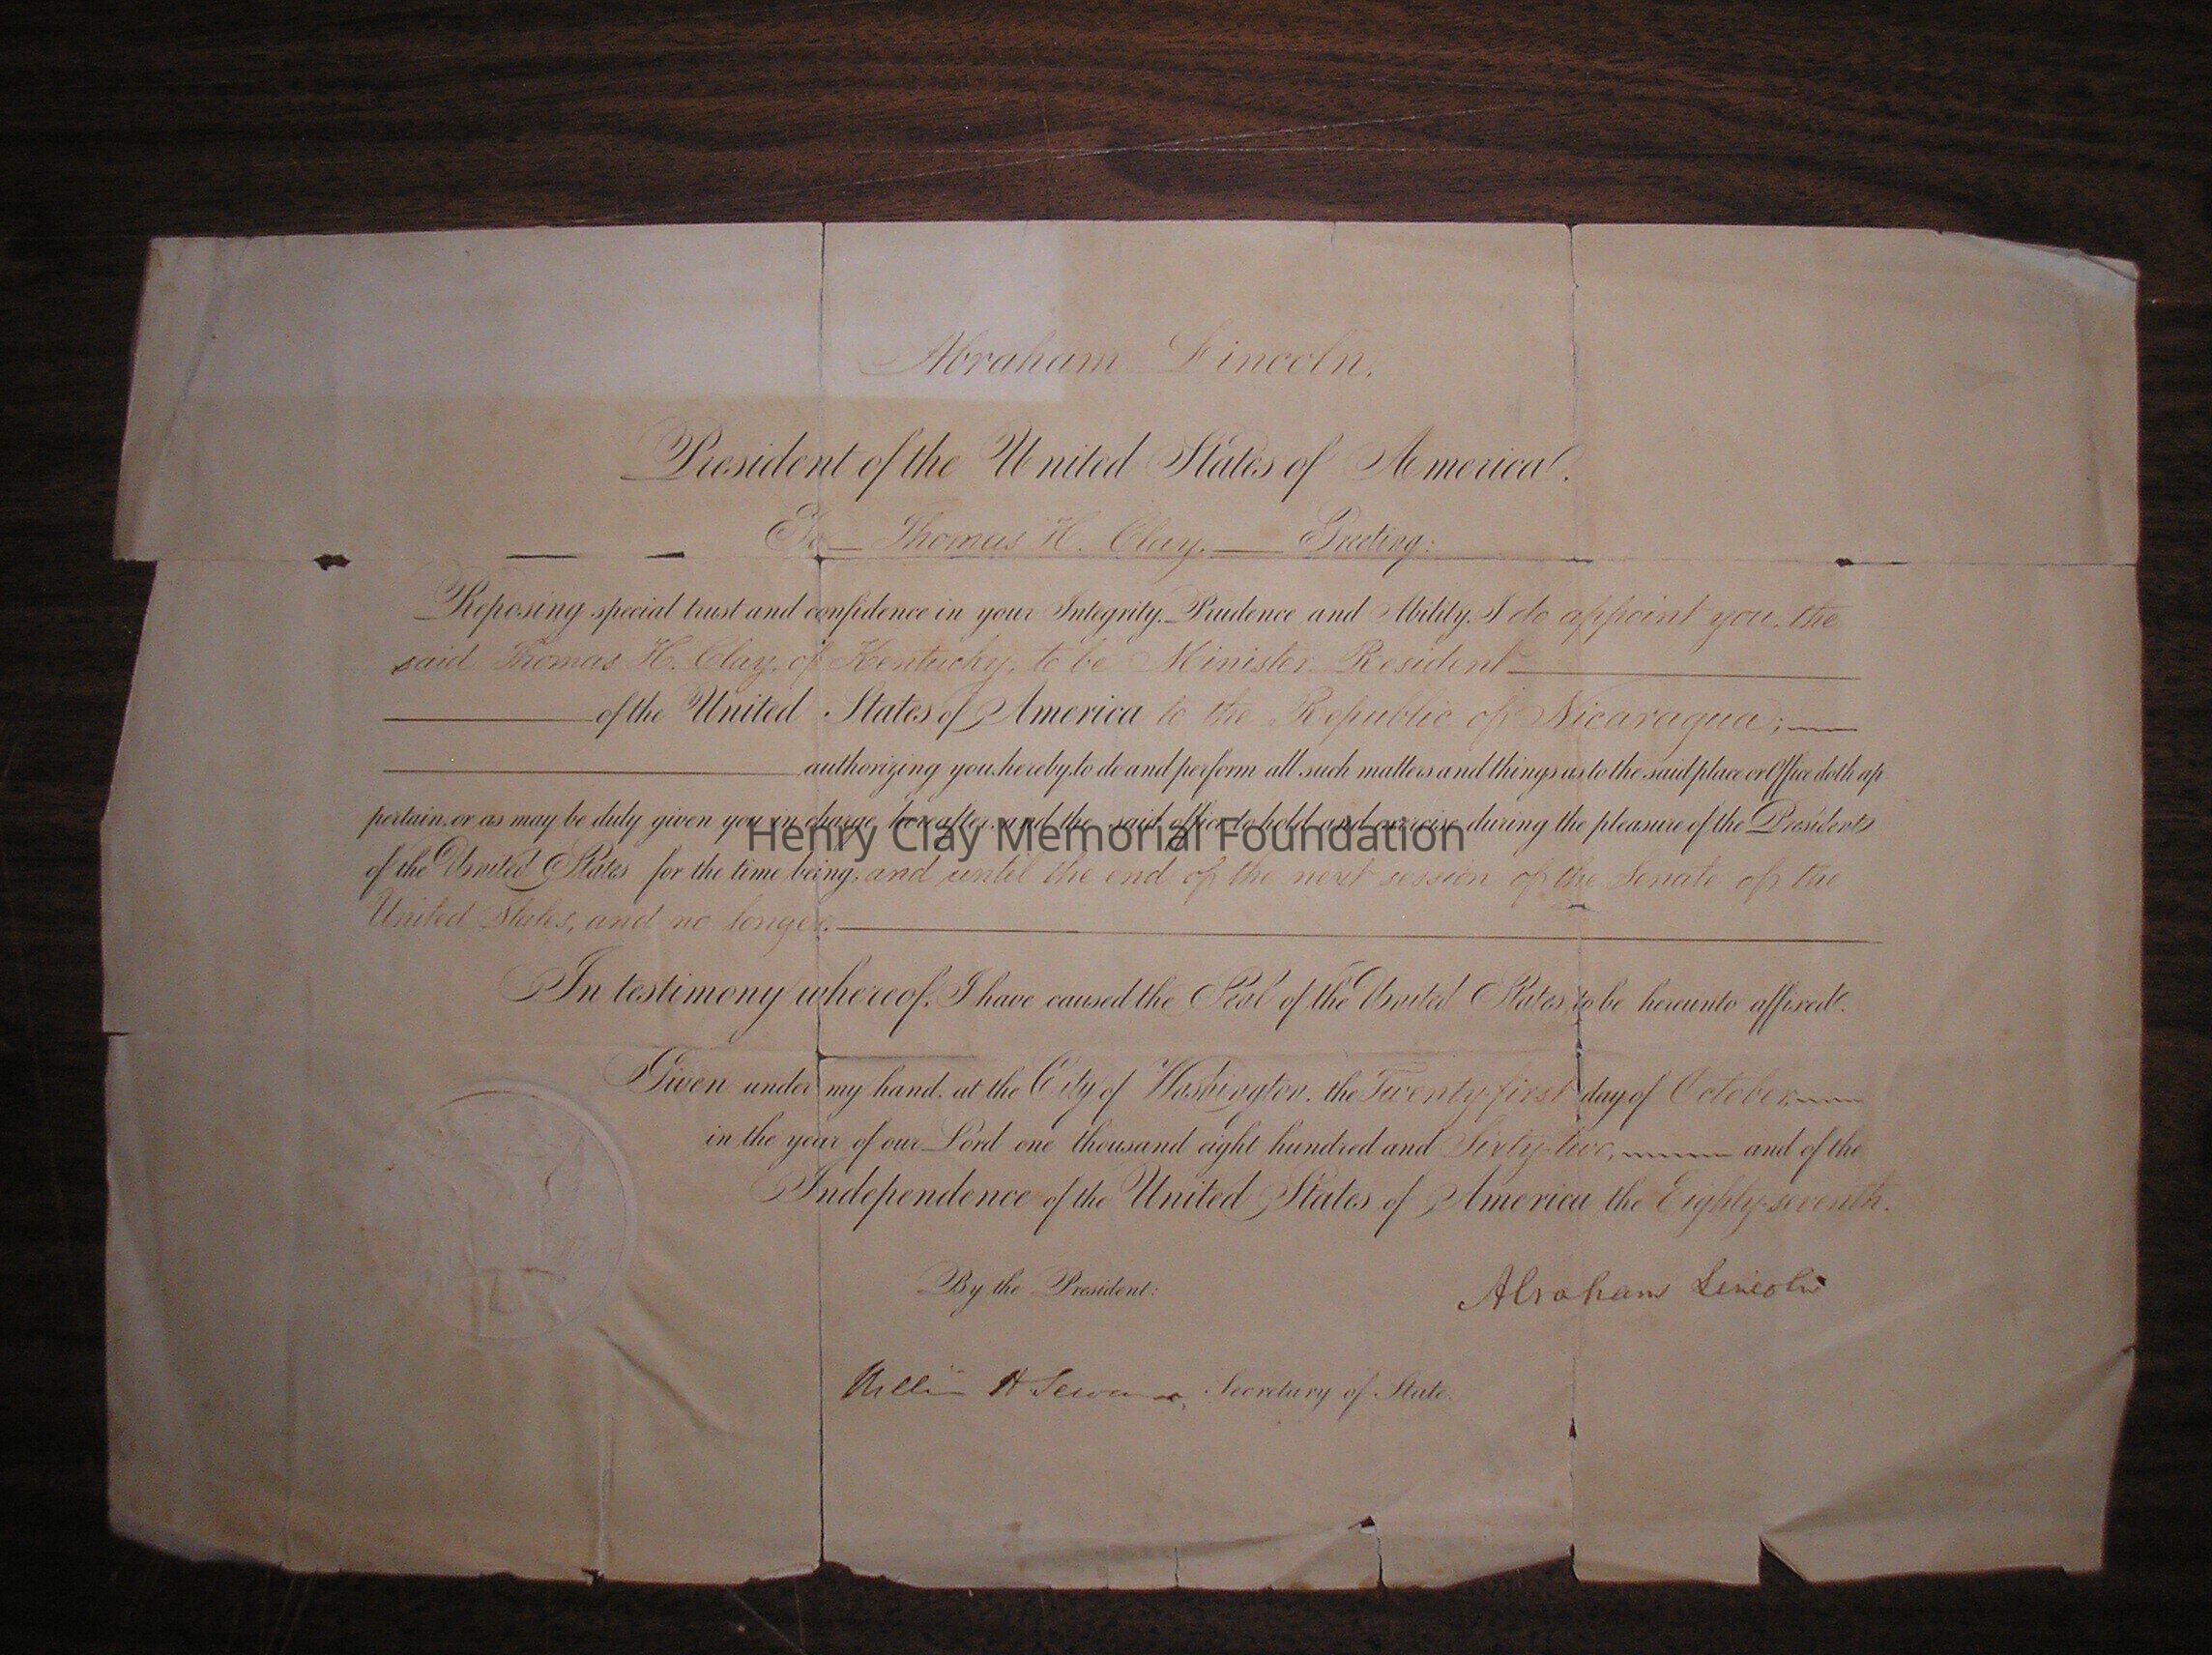 Abraham Lincoln.
President of the United States of America.
To Thomas H. Clay, Greeting:
Reposing special trust and confidence in your Integrity, Prudence and Ability, I do appoint you, the
said Thomas H. Clay, of Kentucky, to be Minister Resident
of the United States of America to the Republic of Nicaragua;
authorizing you, hereby, to do and perform all such matters and things as to the said place or Office doth ap
pertain, or as may be duly given you in charge hereafter, and the said office to hold and exercise during the pleasure of the President
Henry Clay Memorial Foundation
of the United States for the time being, and until the end of the next session of the Senate of the
United States, and no longer.
In testimony whereof, I have caused the Seal of the United States to be hereunto affixed.
Given under my hand, at the City of Washington, the Twenty-first day of October,
in the year of our Lord one thousand eight hundred and Sixty-two, and of the
Independence of the United States of America the Eighty-seventh.
By the President: Abraham Lincoln
William H Seward, Secretary of State.